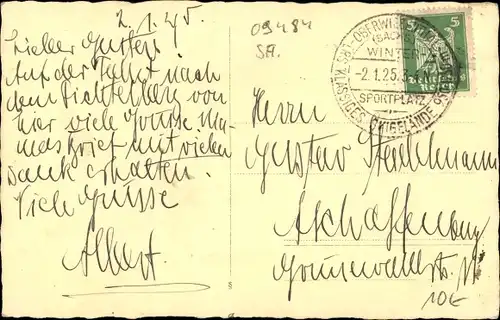 2./1.25.
Lieber Gustav!
Auf der Fahrt nach
dem Fichtelberg von
hier viele Grüsse Ma-
mas Brief mit vielen
Dank erhalten.
Viele Grüsse
Albert.
09484
SA.
OBERWIESENTHAL
(SACHS)
WINTER
-2.1.25.3-4.N
SPORTPLATZ
KLASSIGES SKIGELÄNDE
5 5
Herrn
Gustav Stadelmann
Aschaffenburg
Grünewaldstr.
10E